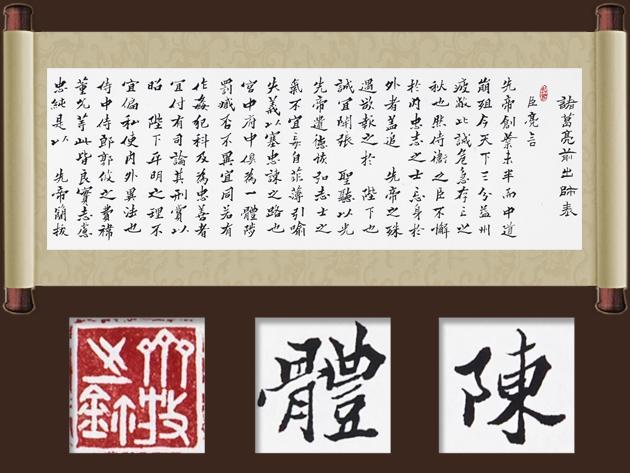 諸葛亮前出師表
臣亮言
先帝創業未半而中道
崩殂今天下三分益州
疲敝此誠危急存亡之
秋也然侍衛之臣不懈
於內忠志之士忘身於
外者蓋追 先帝之殊
遇欲報之於 陛下也
誠宜開張 聖聽以光
先帝遺德恢弘志士之
氣不宜妄自菲薄引喻
失義以塞忠諫之路也
宮中府中俱為一體陟
罰臧否不異宜同若有
作姦犯科及為忠善者
宜付有司論其刑賞以
昭 陛下平明之理不
宜偏私使內外異法也
侍中侍郎郭攸之費禕
董允等此皆良實志慮
忠純是以 先帝簡拔
體
陳